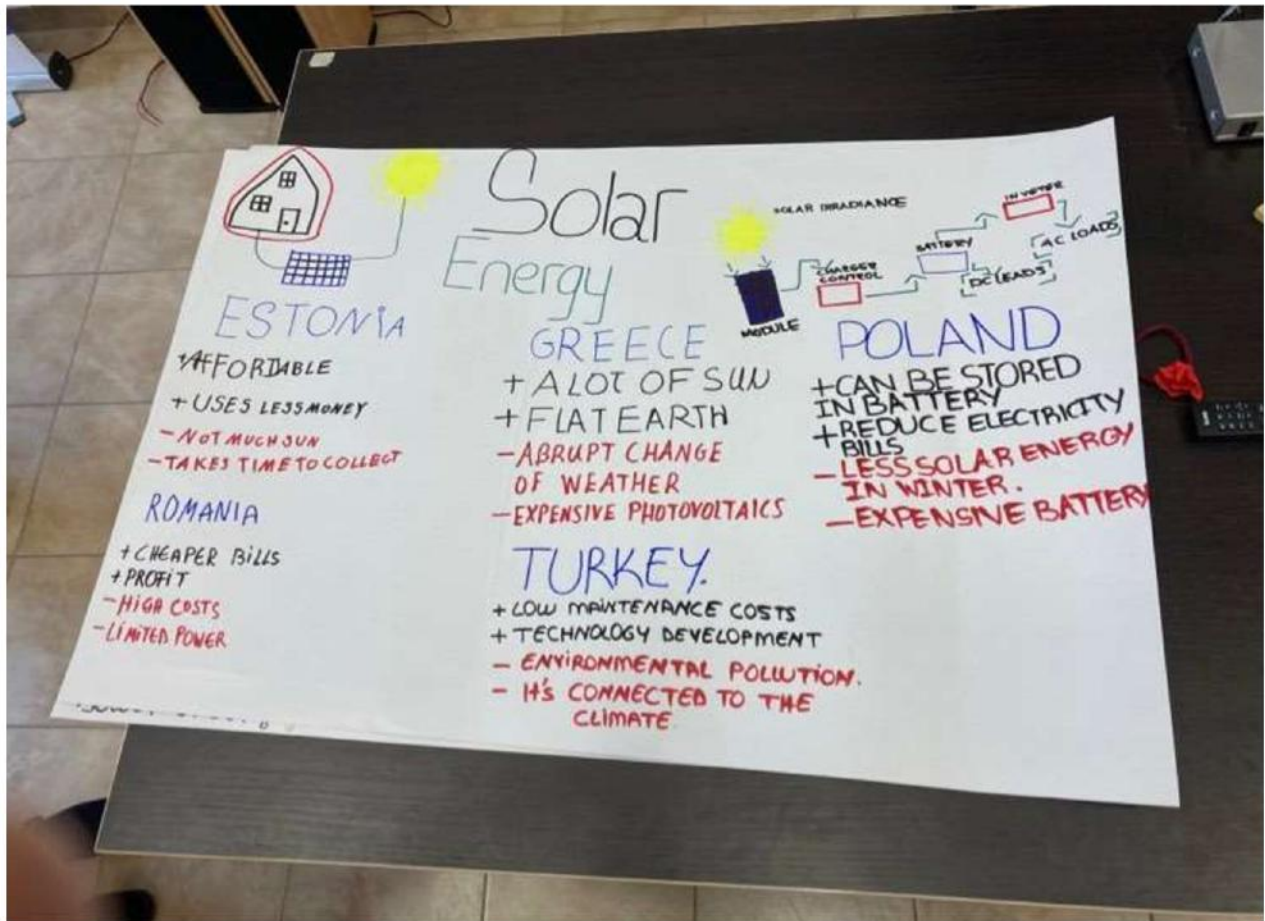 Solar
Energy
SOLAR IRRADIANCE
MODULE
CHARGER
CONTROL
BATTERY
INVETER
AC LOADS
DC LEADS
ESTONIA
+AFFORDABLE
+ USES LESS MONEY
- NOT MUCH SUN
- TAKES TIME TO COLLECT
ROMANIA
+ CHEAPER BILLS
+ PROFIT
- HIGH COSTS
- LIMITED POWER
GREECE
+ A LOT OF SUN
+ FLAT EARTH
- ABRUPT CHANGE
OF WEATHER
- EXPENSIVE PHOTOVOLTAICS
TURKEY.
+ LOW MAINTENANCE COSTS
+ TECHNOLOGY DEVELOPMENT
- ENVIRONMENTAL POLLUTION.
- IT'S CONNECTED TO THE
CLIMATE.
POLAND
+ CAN BE STORED
IN BATTERY
+ REDUCE ELECTRICITY
BILLS
- LESS SOLAR ENERGY
IN WINTER.
- EXPENSIVE BATTERY